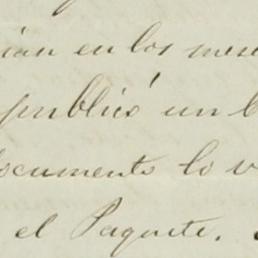 en los
publicó un
documento lo
el Paquete.